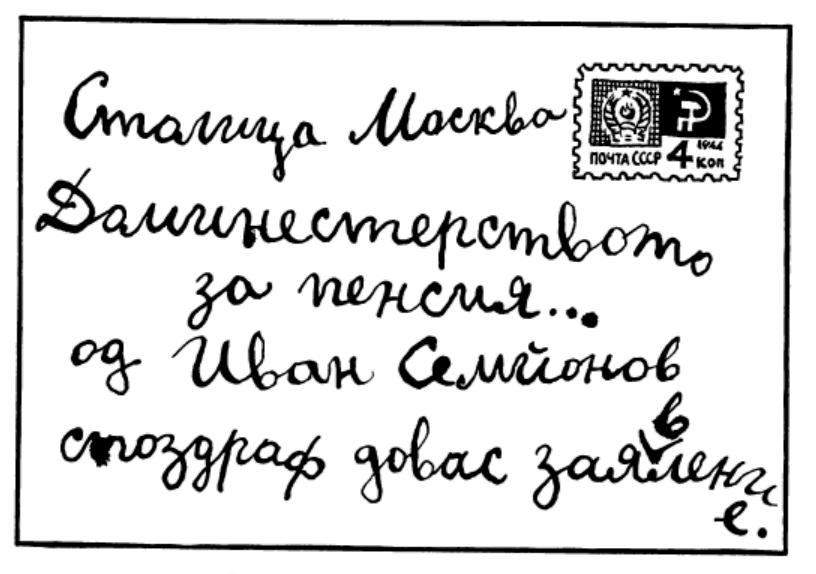 Сталица Москва
ПОЧТА СССР 4 КОП 1966
Даминестерството
за пенсия...
од Иван Семйонов
стоздраф довас заявление.